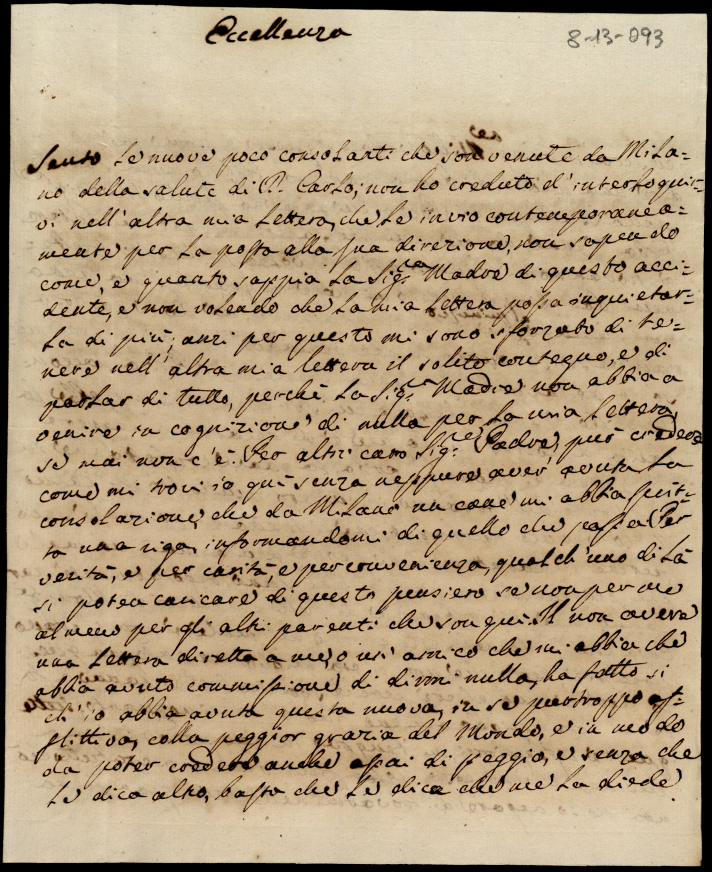 Eccellenza
8-13-093
Sento le nuove poco consolanti che son venute da Mila=
no della salute di D. Carlo; non ho creduto d'interloquir=
vi nell'altra mia lettera, che le invio contemporanea=
mente per la posta alla sua direzione, non sapendo
come, e quanto sappia la Sig.ra Madre di questo acci=
dente, e non volendo che la mia lettera possa inquietar=
la di più; anzi per questo mi sono sforzato di te=
nere nell'altra mia lettera il solito contegno, e di
parlar di tutto, perchè la Sig.ra Madre non abbia a
venire in cognizione di nulla per la mia lettera,
se mai non c'è. Per altro caro Sig.re Padre, può credere
come mi trovi io quì senza neppure aver avuta la
consolazione, che da Milano un cane mi abbia scrit=
ta una riga, informandomi di quello che passa. Per
verità, e per carità, e per convenienza, qualch'uno di là
si potea caricare di questo pensiero se non per me
almeno per gli altri parenti che son qui. Il non avere
una lettera diretta a me, o un' amico che mi abbia che
abbia avuto commissione di dirmi nulla, ha fatto si
ch'io abbia avuta questa nuova, in se purtroppo af=
flittiva, colla peggior grazia del Mondo, e in modo
da poter credere anche assai di peggio, e senza che
le dica altro, basta che le dica che me la diede